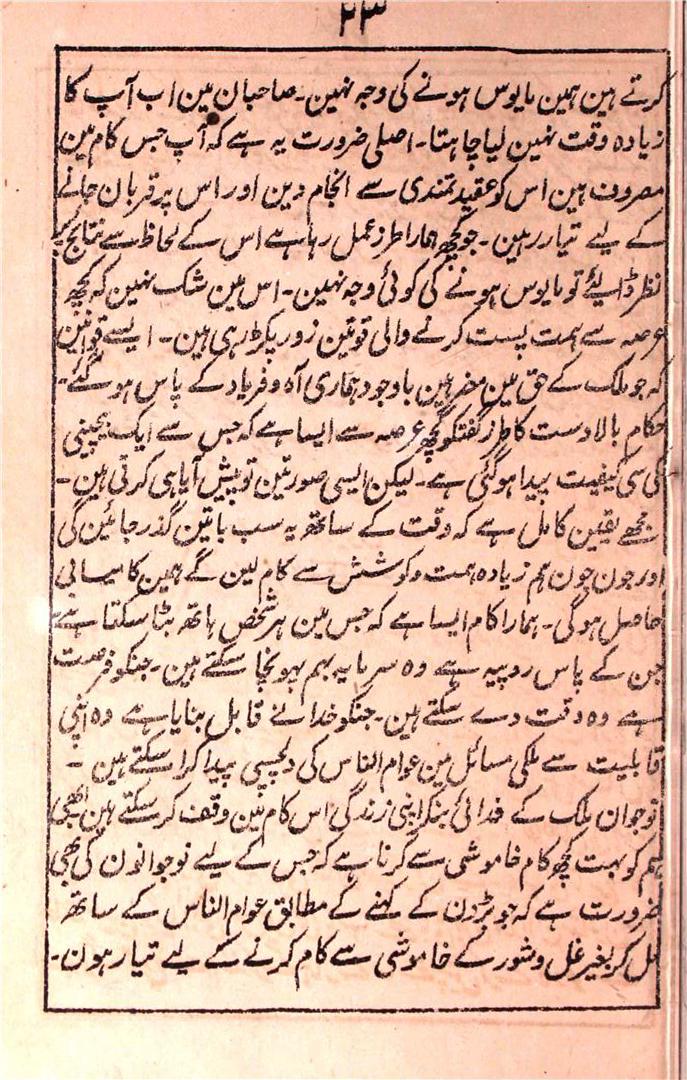 ۲۳
کرتے ہین ہمین مایوس ہونے کی وجہ نہین۔ صاحبان مین اب آپ کا
زیادہ وقت نہین لیا چاہتا۔ اصلی ضرورت یہ ہے کہ آپ جس کام مین
مصروف ہین اس کو عقیدتمندی سے انجام دین اور اس پر قربان جانے
کے لیے تیار رہین۔ جو کچھ ہمارا طرز عمل رہا ہے اس کے لحاظ سے نتائج پر
نظر ڈالیئے تو مایوس ہونے کی کوئی وجہ نہین۔ اس مین شک نہین کہ کچھ
عرصہ سے ہمت پست کرنے والی قوتین زور پکڑ رہی ہین۔ ایسے قوانین
کہ جو ملک کے حق مین مضر ہین باوجود ہماری آہ و فریاد کے پاس ہو گئے۔
حکام بالادست کا طرز گفتگو کچھ عرصہ سے ایسا ہے کہ جس سے ایک بیچینی
کی سی کیفیت پیدا ہو گئی ہے۔ لیکن ایسی صورتین تو پیش آیا ہی کرتی ہین۔
مجھے یقین کامل ہے کہ وقت کے ساتھ یہ سب باتین گذر جائین گی
اور جون جون ہم زیادہ ہمت و کوشش سے کام لین گے ہمین کامیابی
حاصل ہوگی۔ ہمارا کام ایسا ہے کہ جس مین ہر شخص ہاتھ بٹا سکتا ہے
جن کے پاس روپیہ ہے وہ سرمایہ بہم پہونچا سکتے ہین۔ جنکو فرصت
ہے وہ وقت دے سکتے ہین۔ جنکو خدا نے قابل بنایا ہے وہ اپنی
قابلیت سے ملکی مسائل مین عوام الناس کی دلچسپی پیدا کرا سکتے ہین۔
نوجوان ملک کے فدائی بنکر اپنی زندگی اس کام مین وقف کر سکتے ہین ابھی
ہم کو بہت کچھ کام خاموشی سے کرنا ہے کہ جس کے لیے نوجوانون کی بھی
ضرورت ہے کہ جو بڑون کے کہنے کے مطابق عوام الناس کے ساتھ
مل کر بغیر غل و شور کے خاموشی سے کام کرنے کے لیے تیار ہون۔